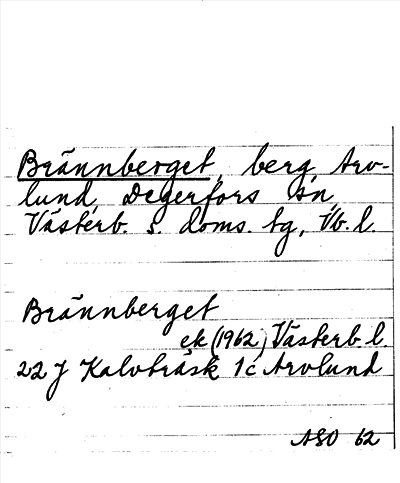 Brännberget, berg, Arv-
lund, Degerfors sn,
Västerb. s. doms. tg, Vb. l.
Brännberget
ek (1962) Västerb. l
22 J Kalvträsk 1c Arvlund
ASO 62